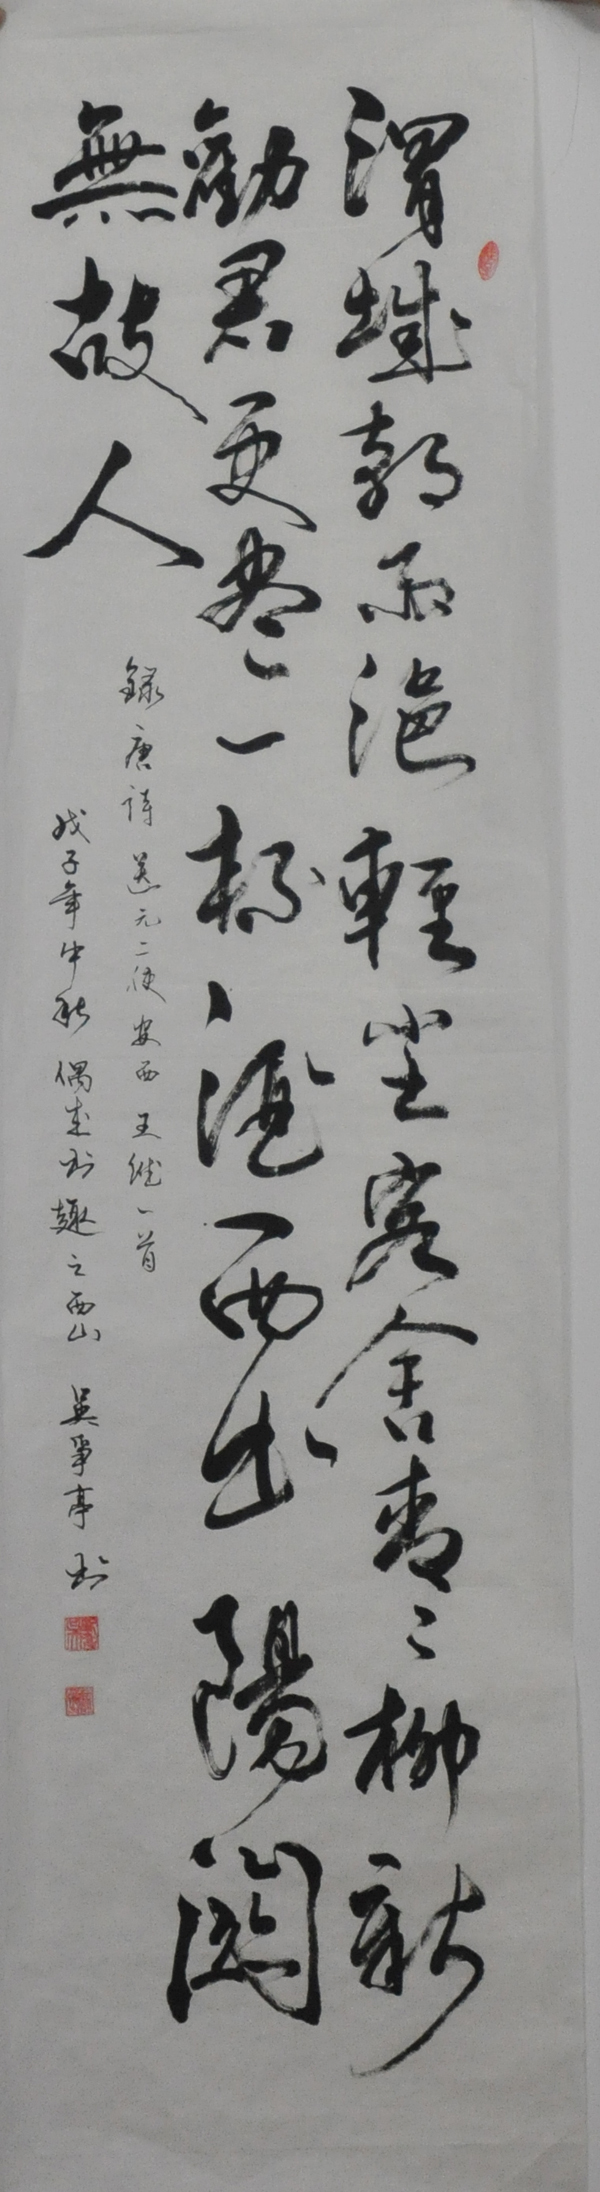 渭城朝雨浥輕尘客舍青々柳新
勸君更盡一杯酒西出陽關
無故人
録唐詩送元二使安西王維一首
戊子年中秋偶书趣之西山 吴爭亭书